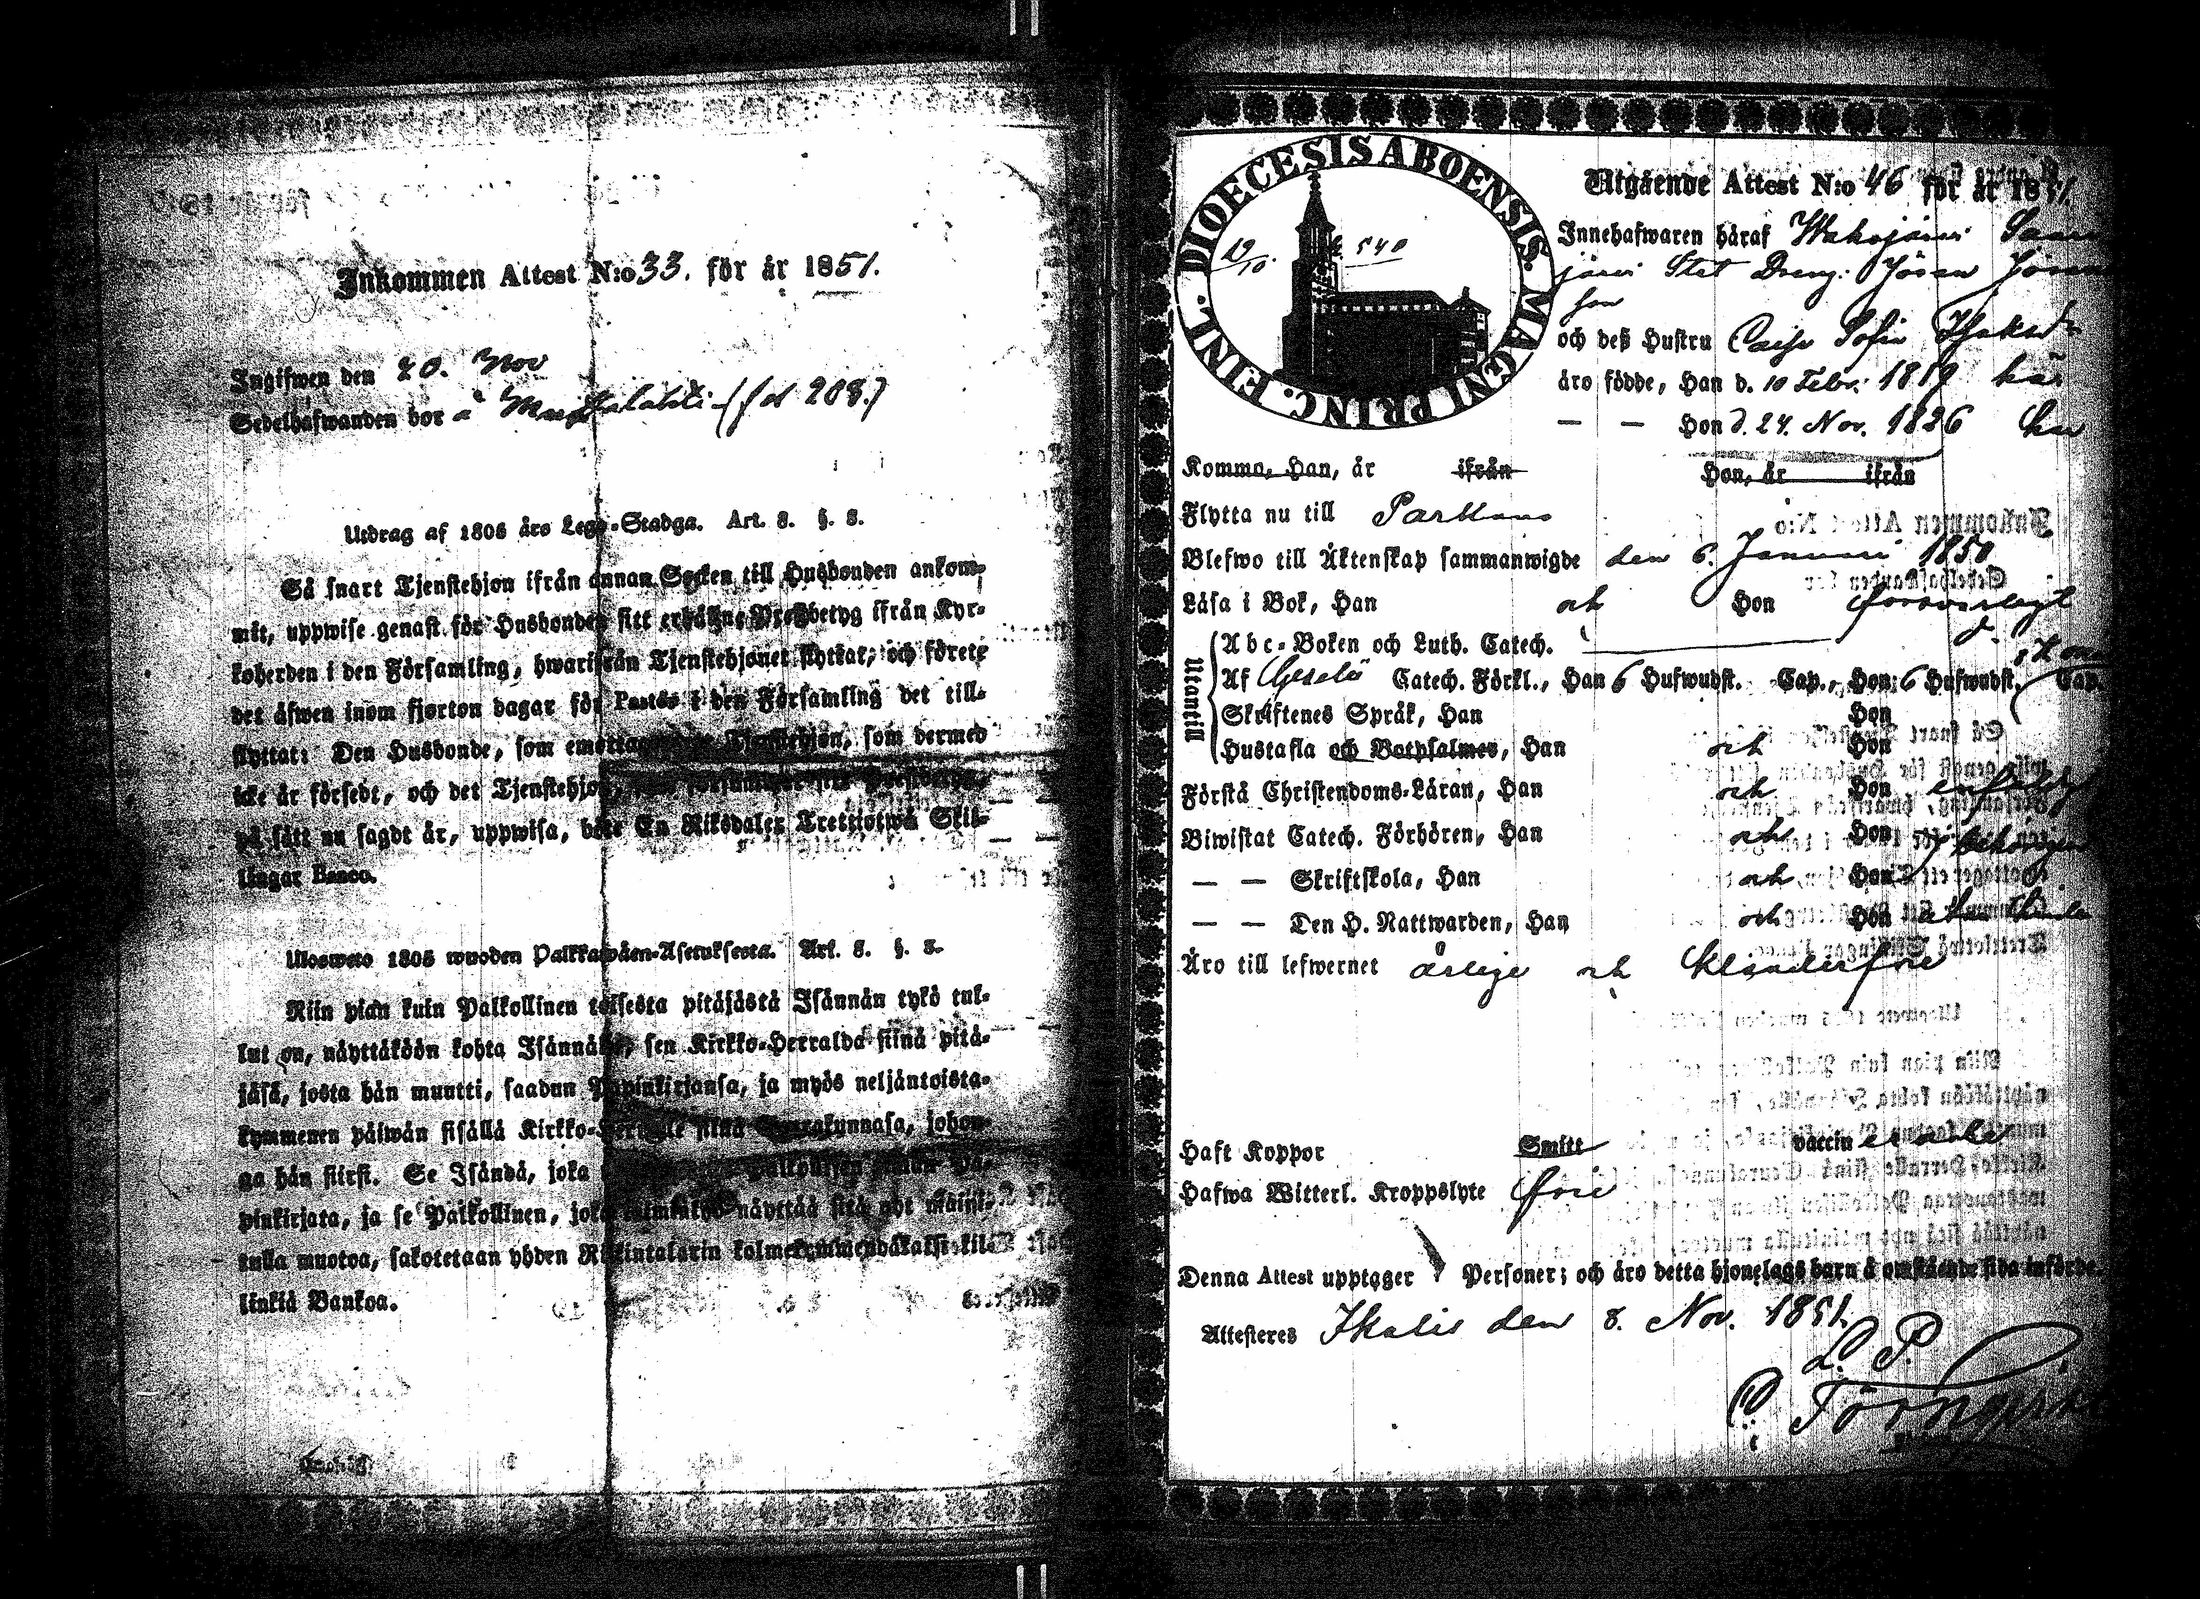 Inkommen Attest N:o 33. för år 1851.
Ingifwen den 20. Nov
Sedelhafwanden bor å (fol 208.)
Utdrag af 1805 års Lego-Stadga. Art. 8. §. 8.
Så snart Tjenstehjon ifrån annan Socken till Husbonden ankom-
mit, uppwise genast för Husbonden sitt erhållne Prestbetyg ifrån Kyr-
koherden i den Församling, hwarifrån Tjenstehjonet flyttat, och förete
det äfwen inom fjorton dagar för Pastor i den Församling det till-
flyttat: Den Husbonde, som emottager Tjenstehjon, som dermed
icke är försedt, och det Tjenstehjon,
på sätt nu sagdt är, uppwisa, böte En Riksdaler Trettiotwå Skil-
lingar Banco.
Ulosweto 1805 wuoden Palkkawäen-Asetuksesta. Art. 8. §. 8.
Niin pian kuin Palkollinen toisesta pitäjästä Isännän tykö tul-
lut on, näyttäköön kohta Isännälle, sen Kirkko-Herralda siinä pitä-
jäsä, josta hän muutti, saadun Papinkirjansa, ja myös neljäntoista-
kymmenen päiwän sisällä Kirkko-Herralle siinä Seurakunnasa, johon-
ga hän siirsi. Se Isändä, joka
pinkirjata, ja se Palkollinen, joka näyttää sitä nyt mainit-
tulla muotoa, sakotetaan yhden Riikintalarin kolmekymmendäkaksi kil-
linkiä Bankoa.
DIOECESIS ABOENSIS. MAGNI PRINC. FINL.
19/10. 540
Utgående Attest N:o 46 för år 1851.
Innehafwaren häraf
järvi Stat Dreng: Jöran
son
och deß Hustru Caisa Sofia
äro födde, Han d. 10 Febr: 1819 här
— — Hon d. 24. Nov. 1826
Komma, Han, år ifrån Hon, år ifrån
Flytta nu till Parkano
Blefwo till Äktenskap sammanwigde den 6. Januari 1850
Läsa i Bok, Han och Hon försvarligt
Utantill
Abc-Boken och Luth. Catech.
Af Catech. Förkl., Han 6 Hufwudst. Cap., Hon 6 Hufwudst. Cap.
Skriftenes Språk, Han Hon
Hustafla och Botpsalmer, Han och Hon
Förstå Christendoms-Läran, Han och Hon enfaldigt
Biwistat Catech. Förhören, Han och Hon behörigen
— — Skriftskola, Han och Hon
— — Den H. Nattwarden, Han och Hon
Äro till lefwernet ärlige och
Haft Koppor Smitt vaccin
Hafwa Witterl. Kroppslyte frie
Denna Attest upptager Personer; och äro detta hjonelags barn å omstående sida införde.
Attesteres Ikalis den 8. Nov. 1851.
L. P.